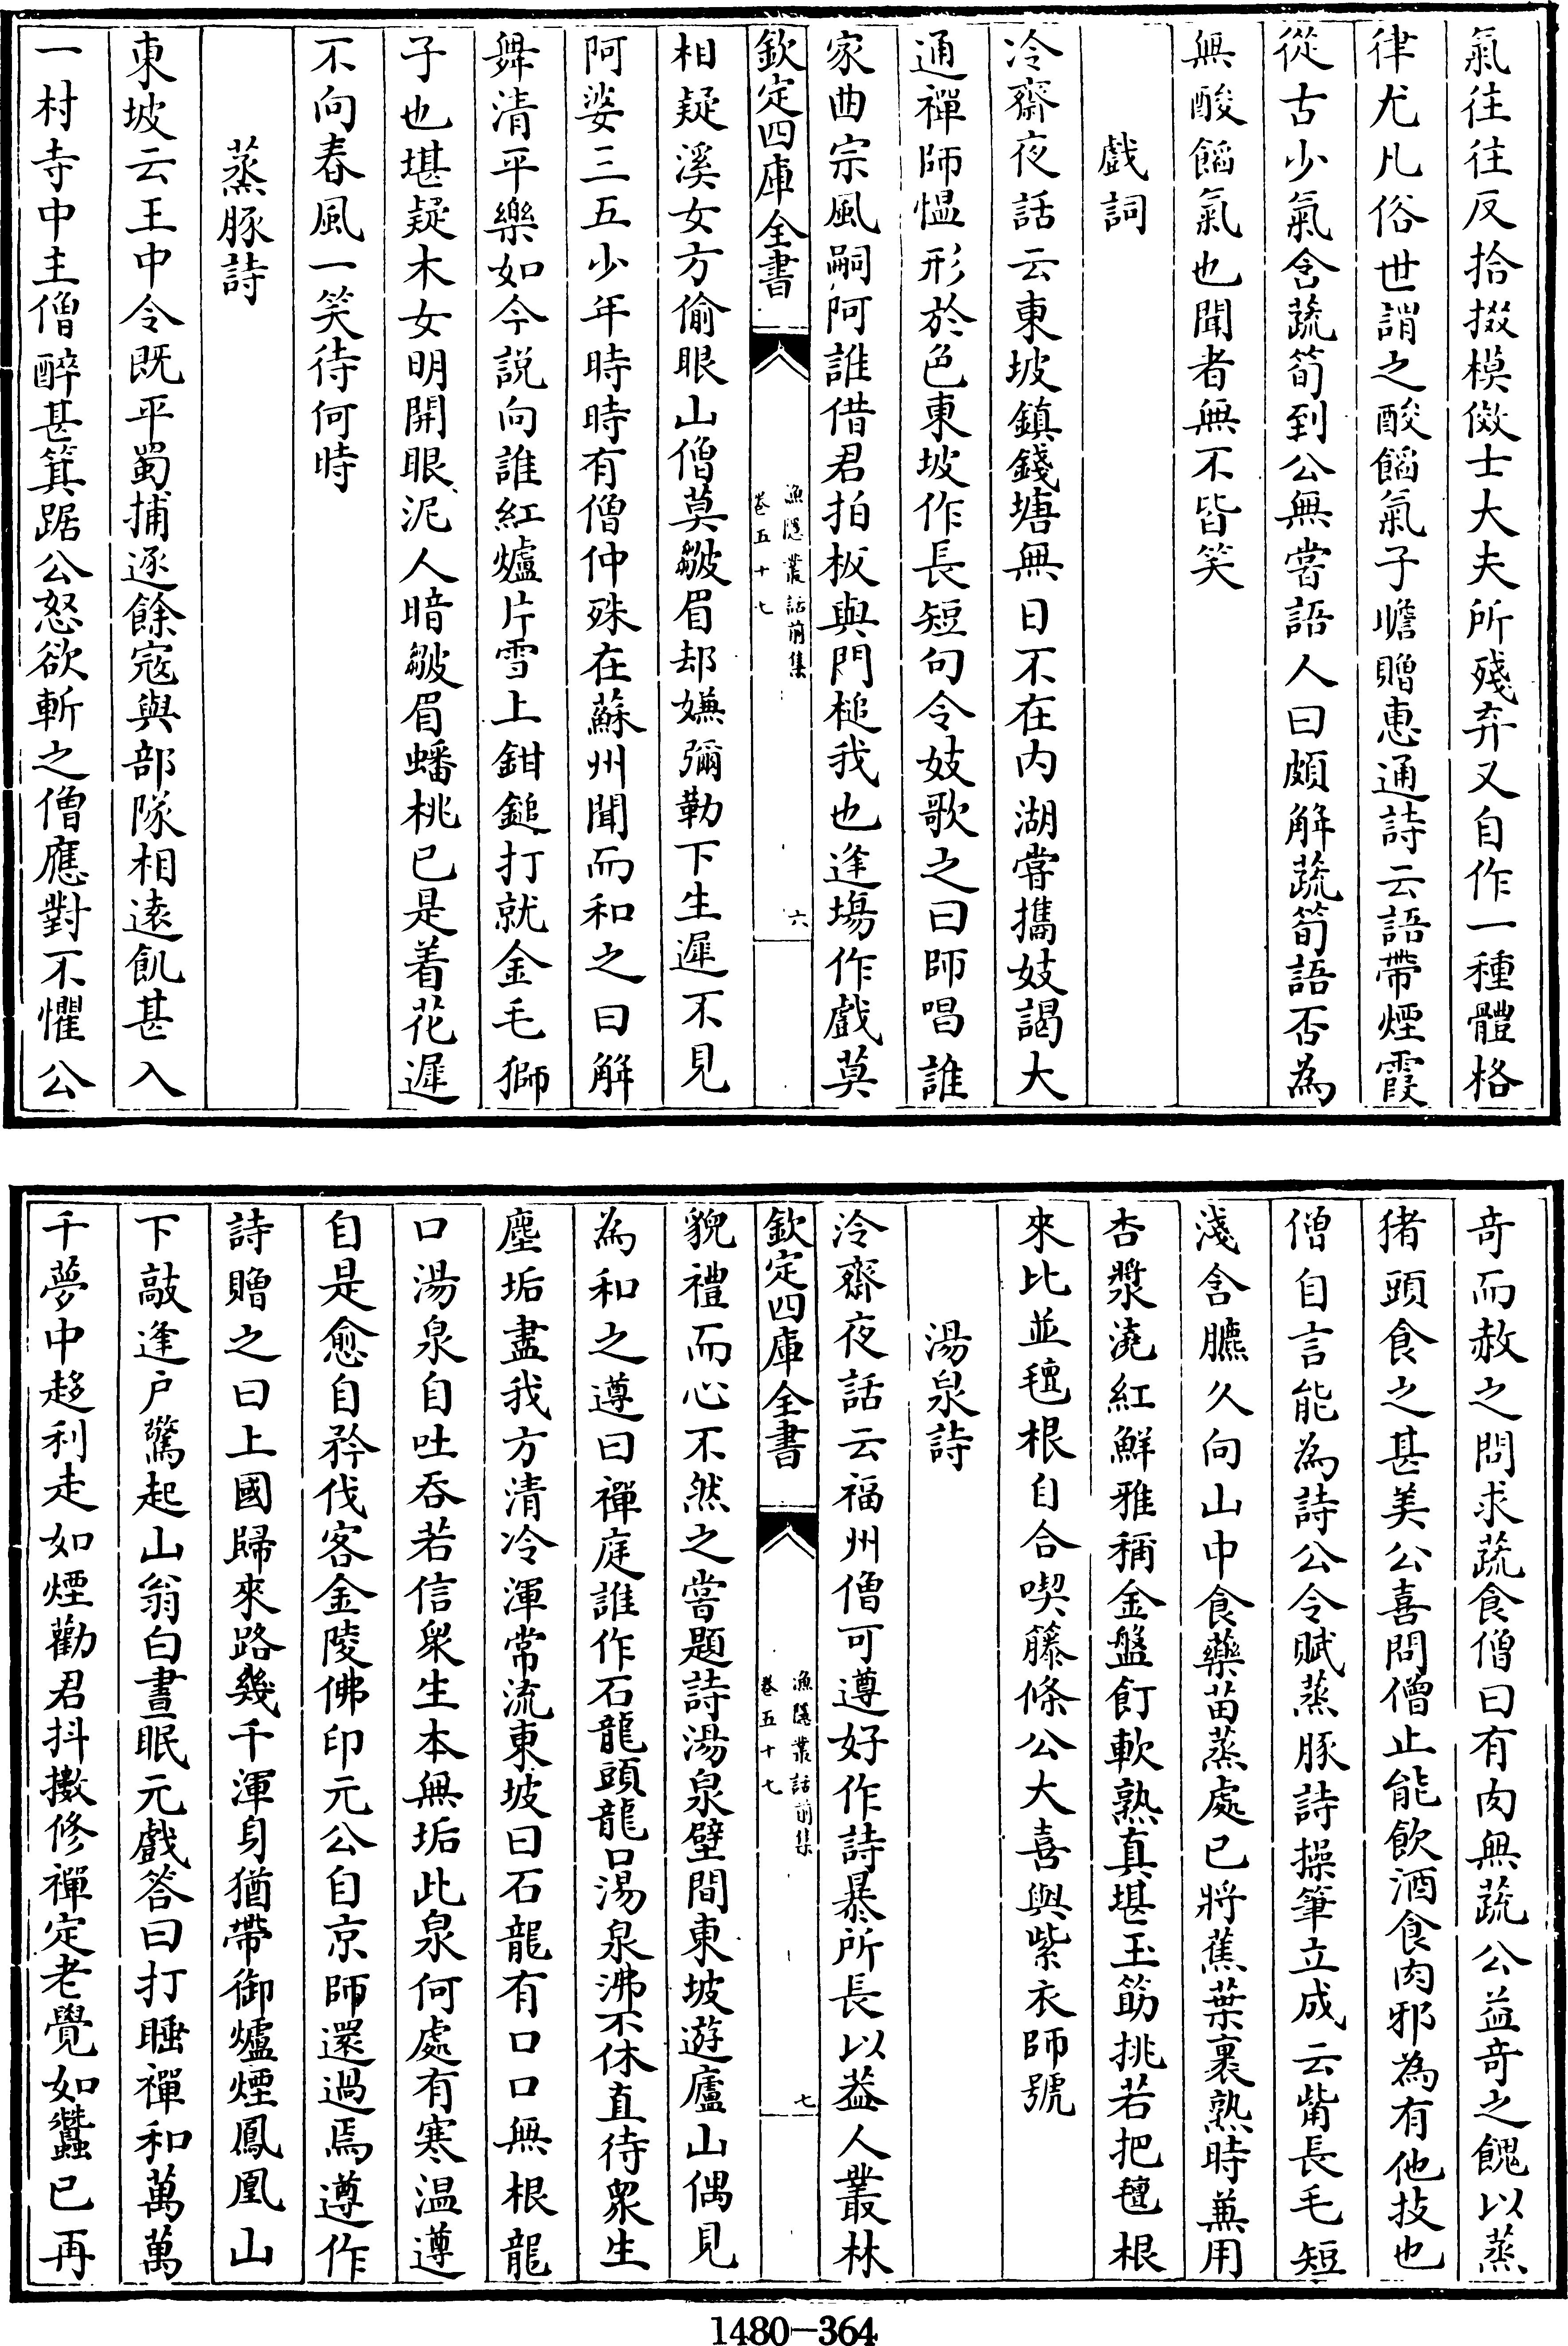 氣往往反拾掇模倣士大夫所殘弃又自作一種體格
律尤凡俗世謂之酸餡氣子瞻贈惠通詩云語帶煙霞
從古少氣含蔬筍到公無嘗語人曰頗解蔬筍語否為
無酸餡氣也聞者無不皆笑
戲詞
冷齋夜話云東坡鎮錢塘無日不在内湖嘗攜妓謁大
通禪師愠形於色東坡作長短句令妓歌之曰師唱誰
家曲宗風嗣阿誰借君拍板與門槌我也逢塲作戲莫
欽定四庫全書
漁隱叢話前集
卷五十七
六
相疑溪女方偷眼山僧莫皺眉却嫌彌勒下生遲不見
阿婆三五少年時時有僧仲殊在蘇州聞而和之曰解
舞清平樂如今説向誰紅爐片雪上鉗鎚打就金毛獅
子也堪疑木女明開眼泥人暗皺眉蟠桃已是着花遲
不向春風一笑待何時
蒸豚詩
東坡云王中令既平蜀捕逐餘寇與部隊相遠飢甚入
一村寺中主僧醉甚箕踞公怒欲斬之僧應對不懼公
奇而赦之問求蔬食僧曰有肉無蔬公益奇之餽以蒸
猪頭食之甚美公喜問僧止能飲酒食肉邪為有他技也
僧自言能為詩公令賦蒸豚詩操筆立成云觜長毛短
淺含臕久向山中食藥苗蒸處已將蕉葉裹熟時兼用
杏漿澆紅鮮雅稱金盤飣軟熟真堪玉筯挑若把氊根
來比並氊根自合喫藤條公大喜與紫衣師號
湯泉詩
冷齋夜話云福州僧可遵好作詩暴所長以葢人叢林
欽定四庫全書
漁隱叢話前集
卷五十七
七
貌禮而心不然之嘗題詩湯泉壁間東坡遊廬山偶見
為和之遵曰禪庭誰作石龍頭龍口湯泉沸不休直待衆生
塵垢盡我方清冷渾常流東坡曰石龍有口口無根龍
口湯泉自吐吞若信衆生本無垢此泉何處有寒温遵
自是愈自矜伐客金陵佛印元公自京師還過焉遵作
詩贈之曰上國歸來路幾千渾身猶帶御爐煙鳳凰山
下敲逢户驚起山翁白晝眠元戲答曰打睡禪和萬萬
千夢中趍利走如煙勸君抖擻修禪定老覺如蠶已再
1480-364